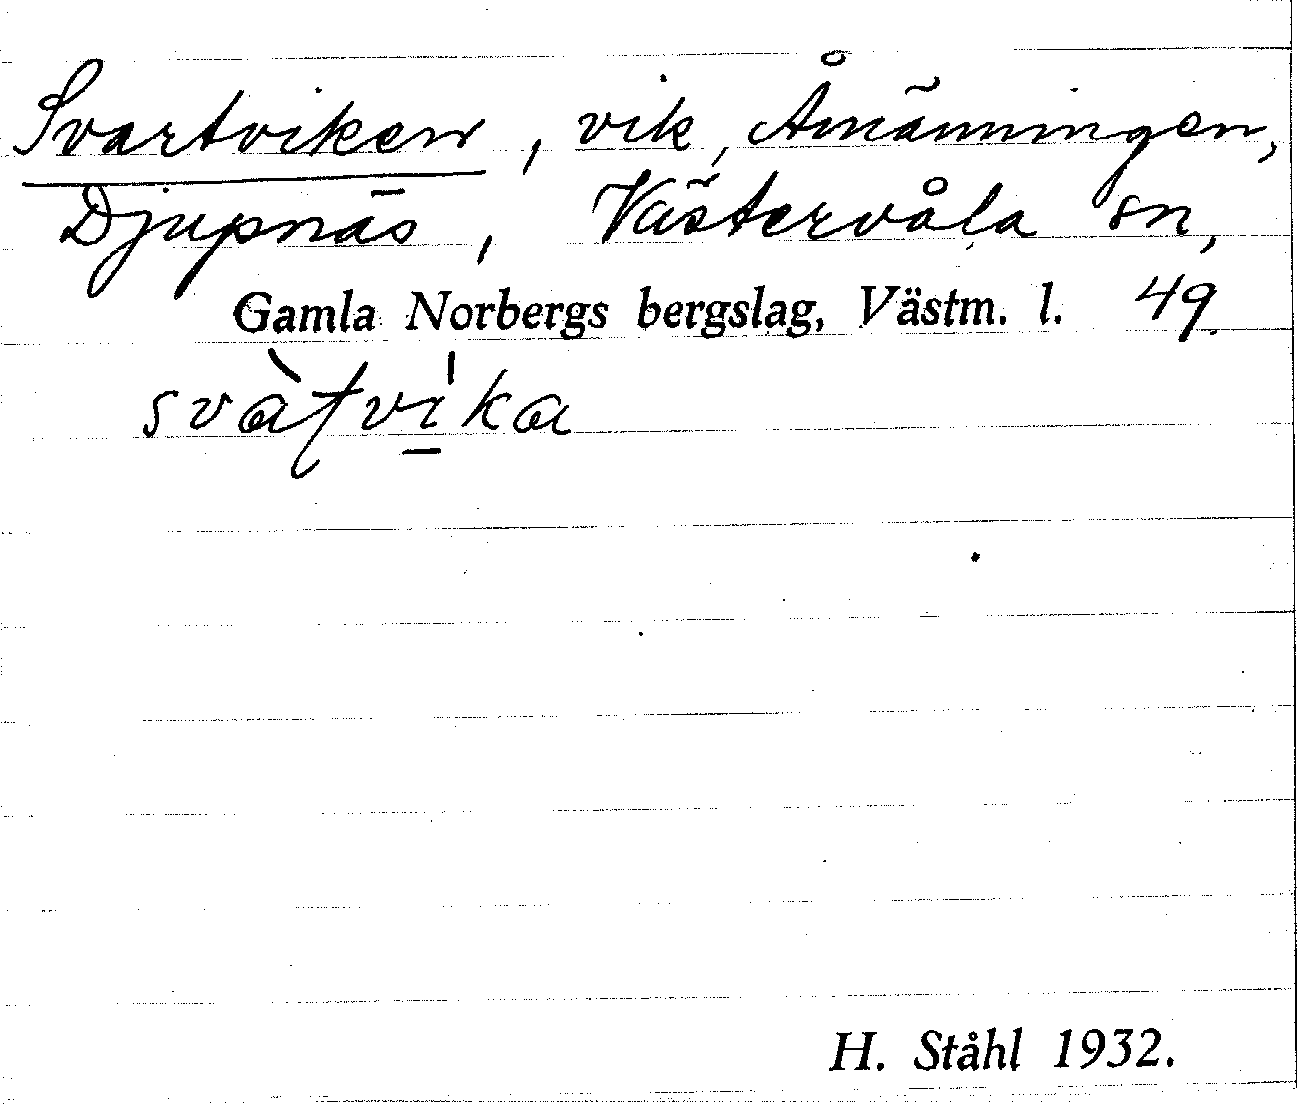 Svartviken, vik, Åmänningen,
Djupnäs, Västervåla sn,
Gamla Norbergs bergslag, Västm. l. 49.
svàʈvi̱ka
H. Ståhl 1932.